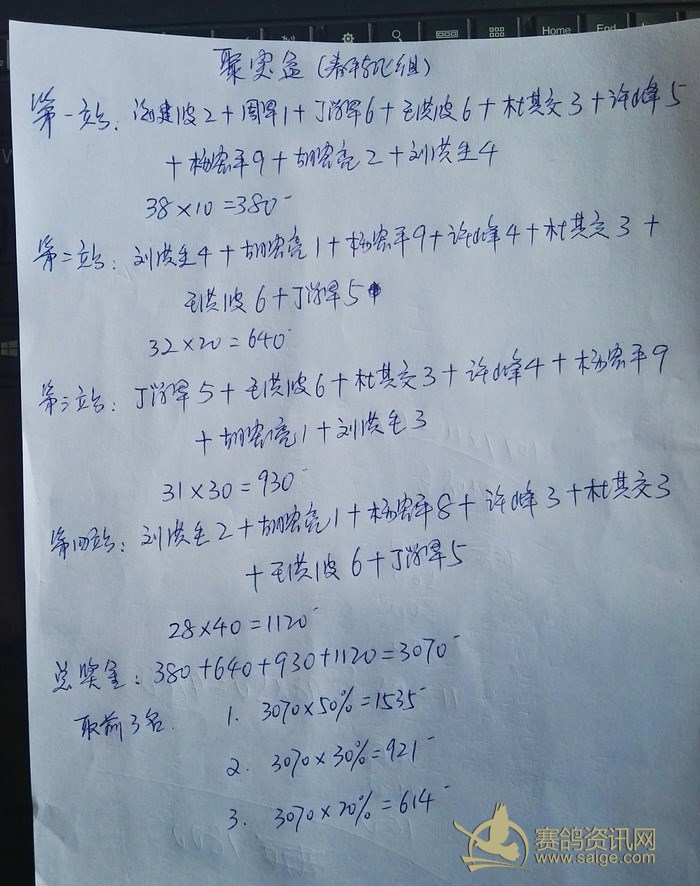 聚宝盆（春季516组）
第一站：汤建波2+周军1+丁海军6+王洪波6+杜其交3+许峰5
+杨宏平9+胡宏亮2+刘洪生4
38×10=380-
第二站：刘洪生4+胡宏亮1+杨宏平9+许峰4+杜其交3+
王洪波6+丁海军5
32×20=640-
第三站：丁海军5+王洪波6+杜其交3+许峰4+杨宏平9
+胡宏亮1+刘洪生3
31×30=930-
第四站：刘洪生2+胡宏亮1+杨宏平8+许峰3+杜其交3
+王洪波6+丁海军5
28×40=1120-
总奖金：380+640+930+1120=3070-
取前3名. 1. 3070×50%=1535-
2. 3070×30%=921-
3. 3070×20%=614-
赛鸽资讯网
www.saige.com
Home
End
Insert